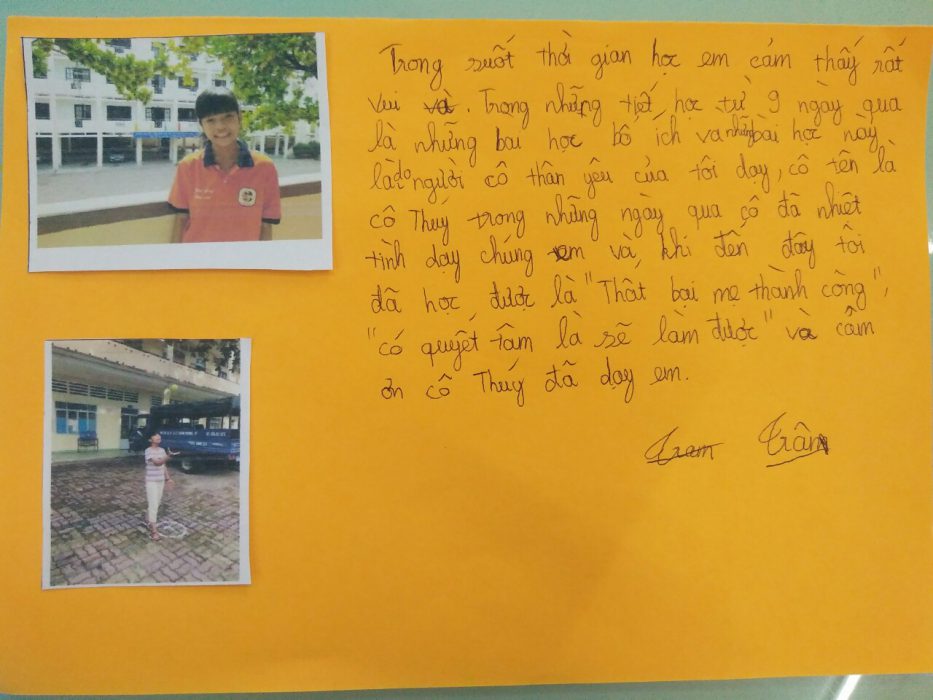 Trong suốt thời gian học em cảm thấy rất
vui và. Trong những tiết học từ 9 ngày qua
là những bài học bổ ích và những bài học này
là do người cô thân yêu của tôi dạy, cô tên là
cô Thuý trong những ngày qua cô đã nhiệt
tình dạy chúng em và khi đến đây tôi
đã học được là "Thất bại mẹ thành công",
"có quyết tâm là sẽ làm được" và cảm
ơn cô Thuý đã dạy em.
Tram Trâm